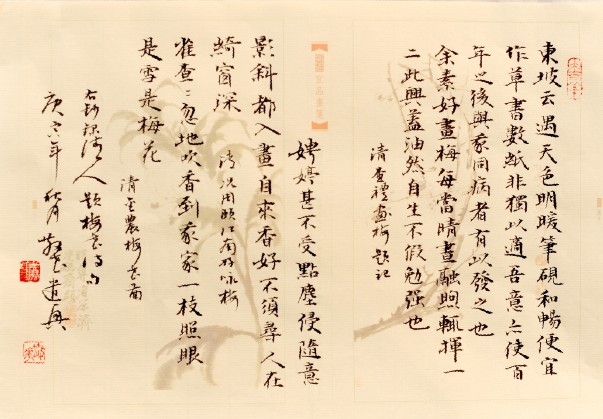 東坡云遇天色明暖筆硯和暢便宜
作草書數紙非獨以適吾意亦使百
年之後與我同病者有以發之也
余素好畫梅每當晴晝融煦輒揮一
二此興益油然自生不假勉强也
清查禮畫梅題記
娉婷甚不受點塵侵隨意
影斜都入畫自來香好不須尋人在
綺窗深
江南好咏梅
雀查〻忽地吹香到我家一枝照眼
是雪是梅花
清金農梅花圖
右錄清人題梅花詩句
庚寅年秋月遣興